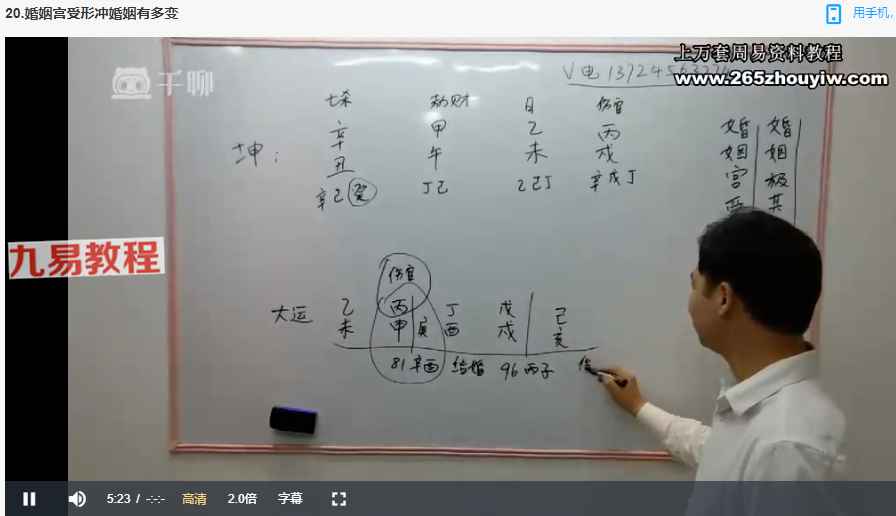 20.婚姻宫受形冲婚姻有多变
用手机,
上万套周易资料教程
V电
www.265zhouyiw.com
千聊
七杀 劫财 日 伤官
坤: 辛 甲 乙 丙
丑 午 未 戌
辛己癸 丁己 乙己丁 辛戊丁
婚 婚
姻 姻
宫 极
其
九易教程
伤官
大运 乙 丙 丁 戊 己
未 申 寅 酉 戌 亥
81辛酉 结婚 96丙子
5:23 / -:-:- 高清 2.0倍 字幕